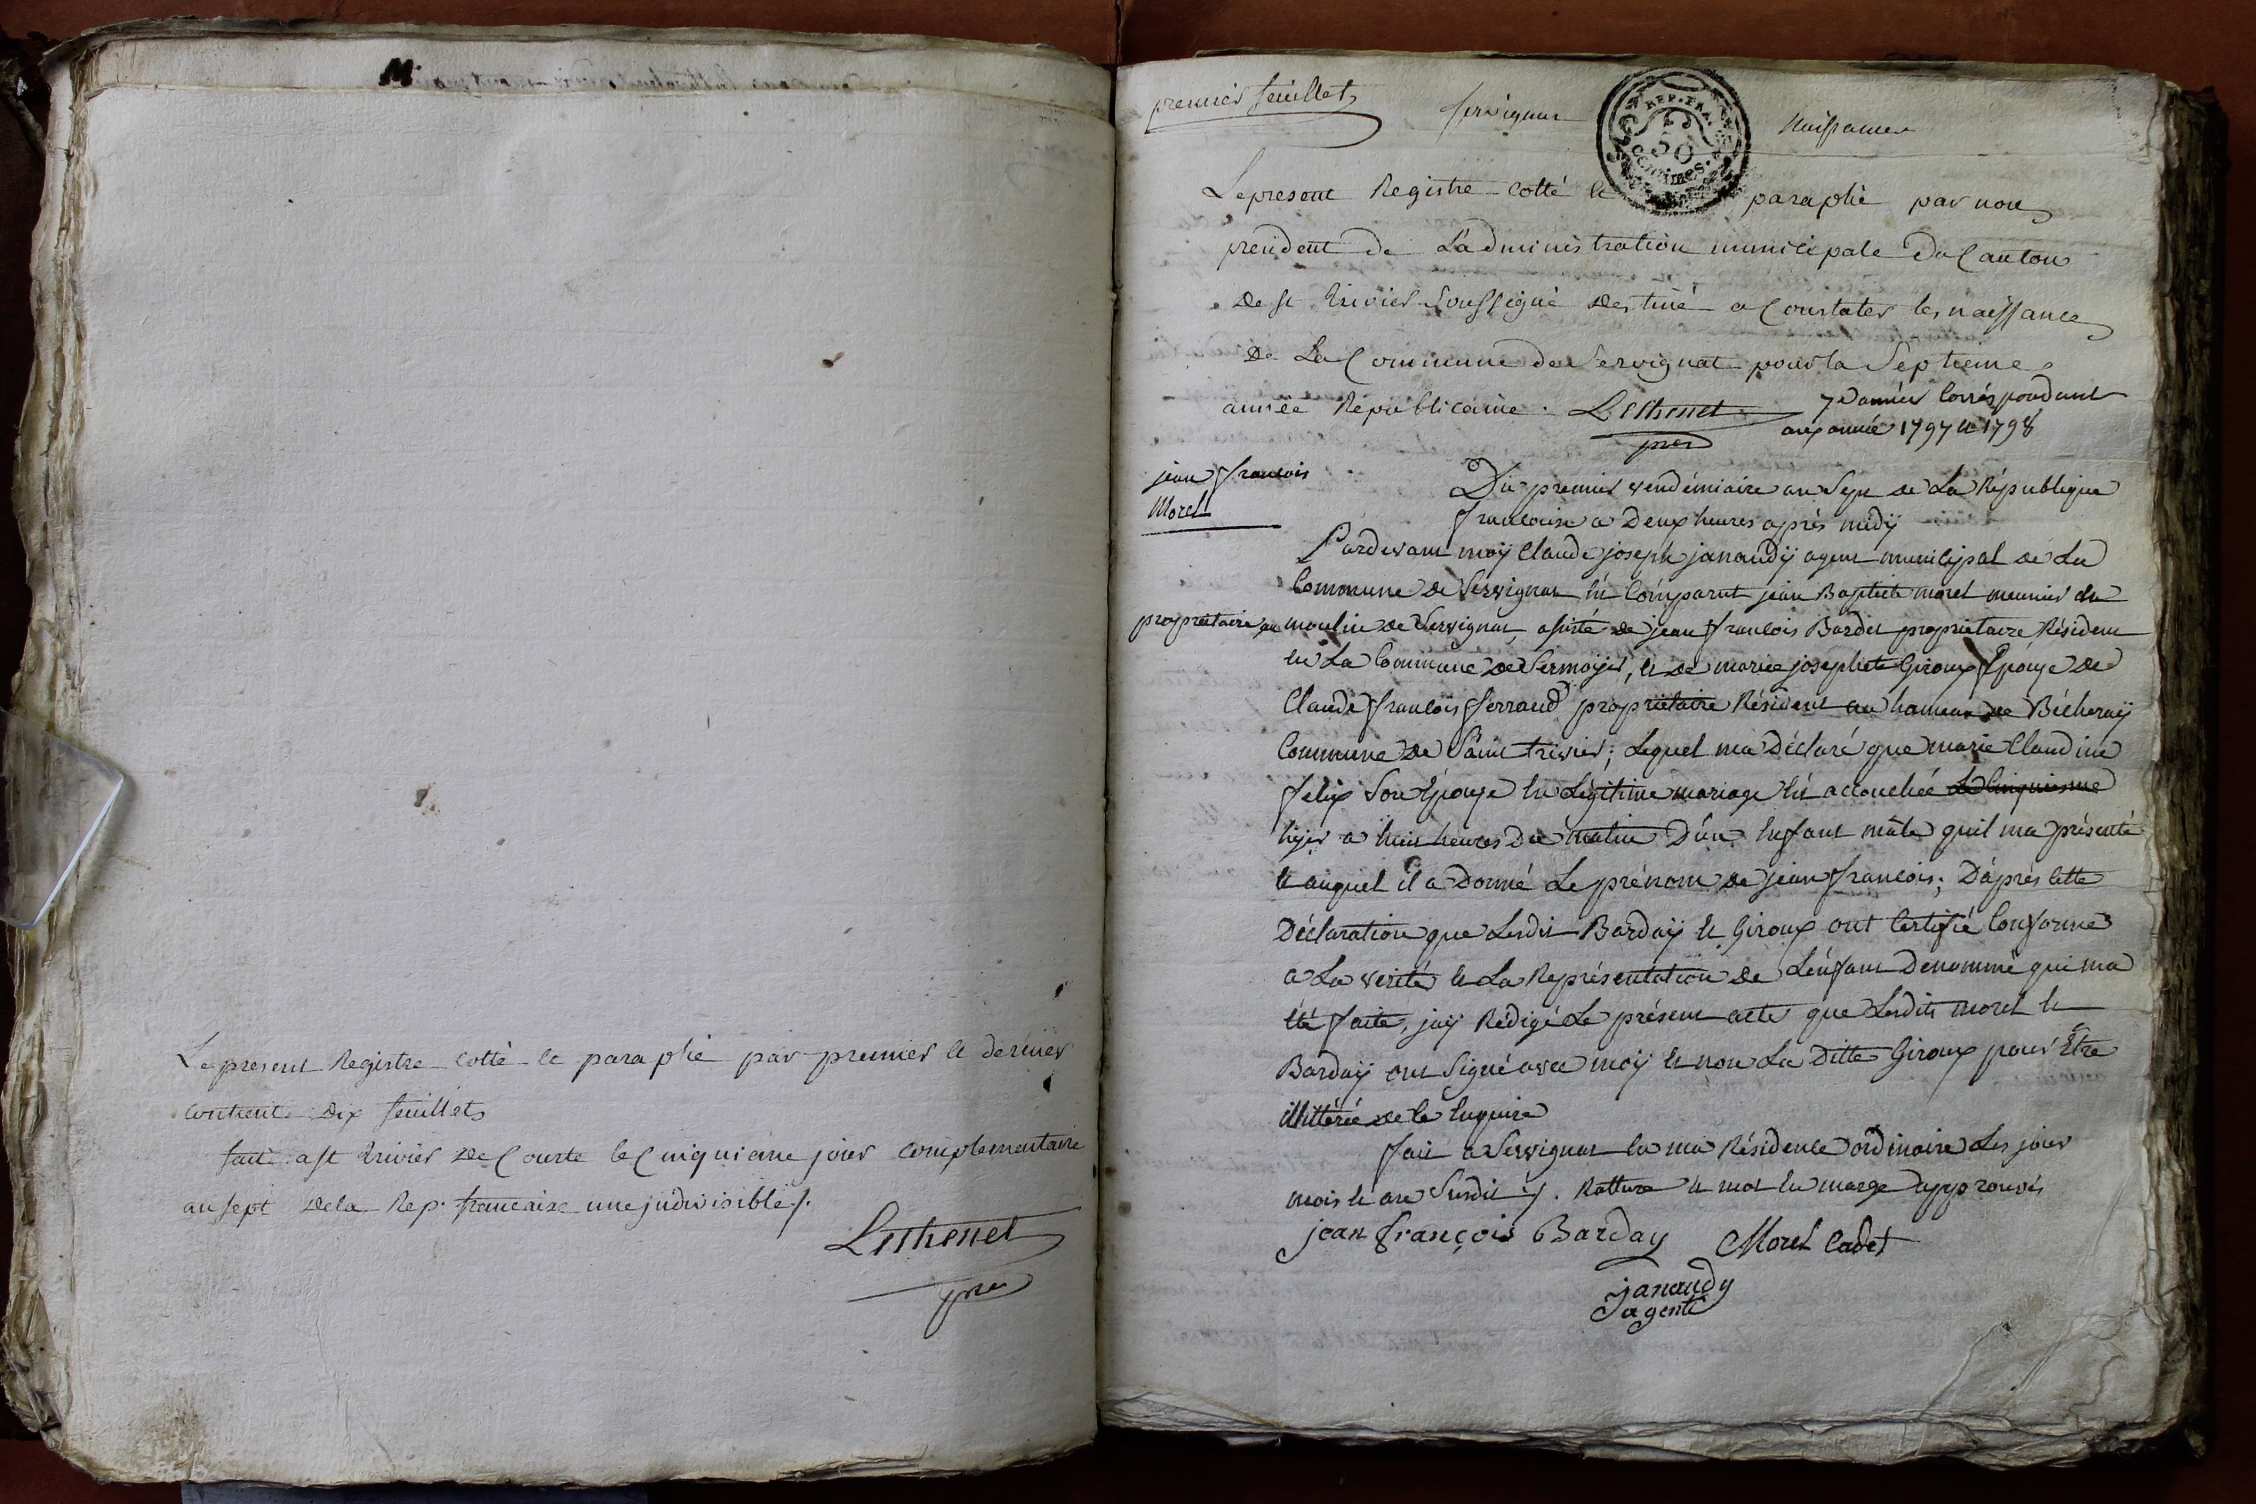 Le present Registre cotté et paraphé par premier et dernier
contient dix feuillets
fait a st trivier de Courte le Cinquieme jour complementaire
an sept dela Rep. francaise une indivisible ./.
Lesthenet
pres
premier feuillet
Servignat
REP. FRA.
50
CENTIMES.
Naissances
Le present Registre cotté et paraphé par nous
president de L'administration municipale du Canton
de st trivier soussigné destiné a Constater les naissances
de La Commune de Servignat pour la Septieme
année Republicaine. Lesthenet
pres
7e année Correspondant
aux année 1797 et 1798
jean francois
Morel
Du premier vendémiaire an Sept de La République
francoise a Deux heures après midÿ
Pardevant moÿ Claude joseph janaudÿ agent municipal de La
Commune de Servignat est Comparut jean Baptiste morel meunier du
propriétaire au
moulin de Servignat, assisté de jean francois Bardet propriétaire Résident
en La Commune de Sermoyer, et de marie josephte Giroux Epouze de
Claude francois ferrand propriétaire Résident au hameau de Bécheraÿ
Commune de Saint trivier; Lequel ma Déclaré que marie Claudine
felix Son Épouze en Légitime mariage est accouchée Le Cinquieme
hyer a huit heures Du matin D'un Enfant mâle quil ma présenté
et auquel il a Donné Le prénom de jean francois; D'après Cette
Déclaration que Lesdit Bardaÿ et Giroux ont Certifié Conforme
a La verité et La Représentation de L'enfant Denommé qui ma
été faite, jaÿ Rédigé Le présent acte que Lesdits morel et
Bardaÿ ont Signé avec moÿ et non La Ditte Giroux pour Être
illittérée de ce Enquise
fait a Servignat en ma Résidence ordinaire Les jour
mois et an Susdit ./. Rature et mot en marge approuvés
jean françois Barday Morel Cadet
janaudy
agent